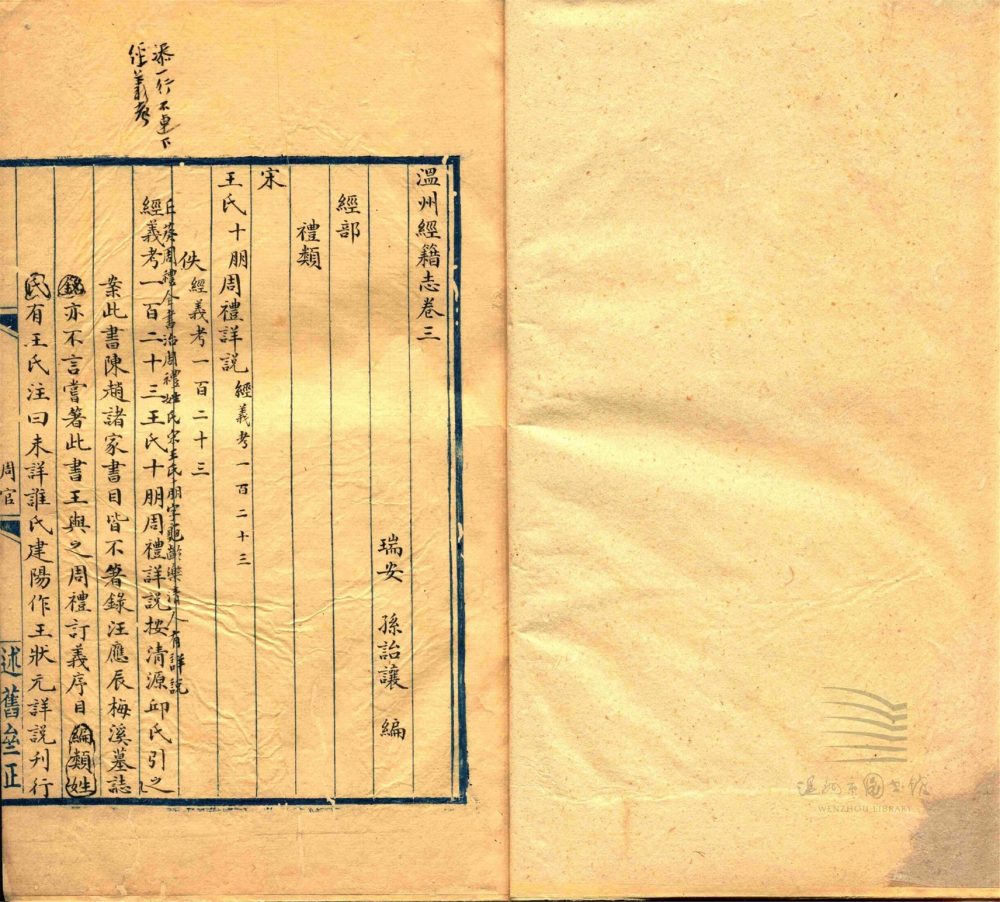 添一行不連下
經義考
溫州經籍志卷三
瑞安 孫詒讓 編
經部
禮類
宋
王氏十朋周禮詳說經義考一百二十三
佚經義考一百二十三
丘葵周禮全書治周禮姓氏宋王氏十朋字龜齡樂清人有詳說
經義考一百二十三王氏十朋周禮詳說按清源邱氏引之
案此書陳趙諸家書目皆不箸錄汪應辰梅溪墓誌
銘亦不言嘗著此書王與之周禮訂義序目編類姓
氏有王氏注曰未詳誰氏建陽作王狀元詳說刊行
周官
述舊
正
溫州市圖書館
WENZHOU LIBRARY